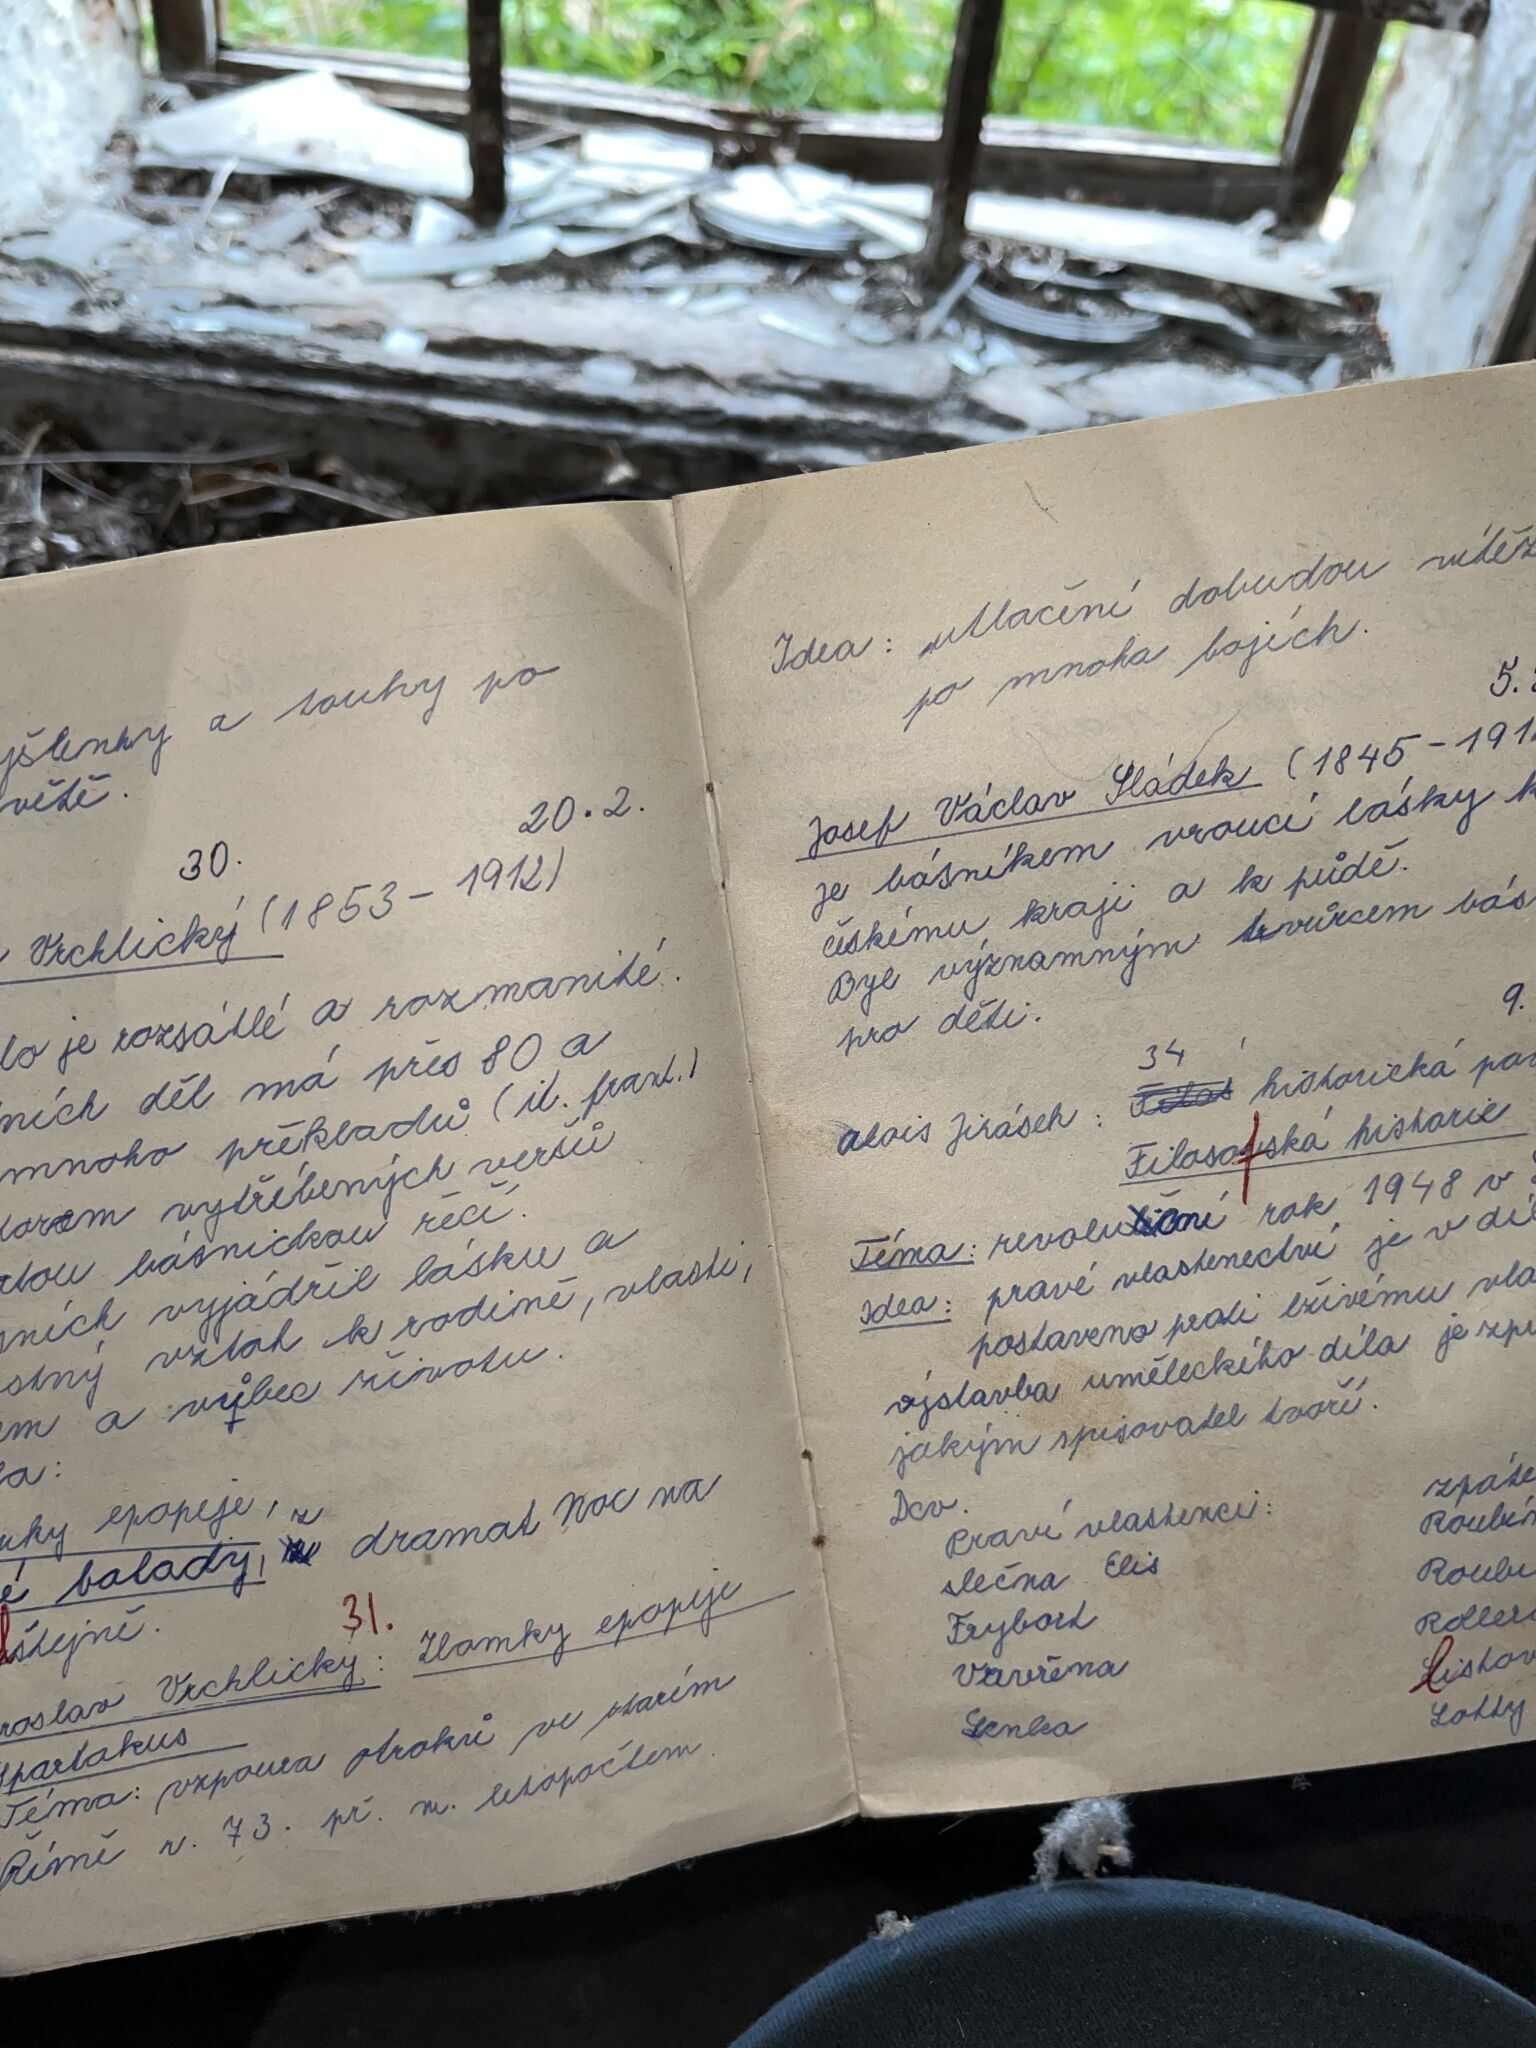 yšlenky a touhy po
větě.
20.2.
30.
Vrchlický (1853 - 1912)
lo je rozsáhlé a rozmanité.
ních děl má přes 80 a
mnoho překladů (it. frant.)
torem vytříbených veršů
tou básnickou řečí.
ních vyjádřil lásku a
stný vztah k rodině, vlasti,
em a vůbec životu.
la:
ky epopeje, z
é balady, dramat Noc na
lštejně.
31.
roslav Vrchlický: Zlomky epopeje
Spartakus
Téma: vzpoura otroků ve starém
Římě r. 73. př. n. letopočtem.
Idea: utlačení dobudou vítěz
po mnoha bojích.
5.
Josef Václav Sládek (1845 - 191
je básníkem vroucí lásky k
českému kraji a k půdě.
Byl významným tvůrcem bás
pro děti.
9.
34
Alois Jirásek: historická pov
Filosofská historie
Téma: revoluční rok 1948 v
Idea: pravé vlastenectví je v díl
postaveno proti lživému vla
výstavba uměleckého díla je způ
jakým spisovatel tvoří.
Dcv.
Praví vlastenci: zpáte
slečna Elis Roubín
Frybort Roubi
Vavřena Rollero
Lenka Listov
Lotty